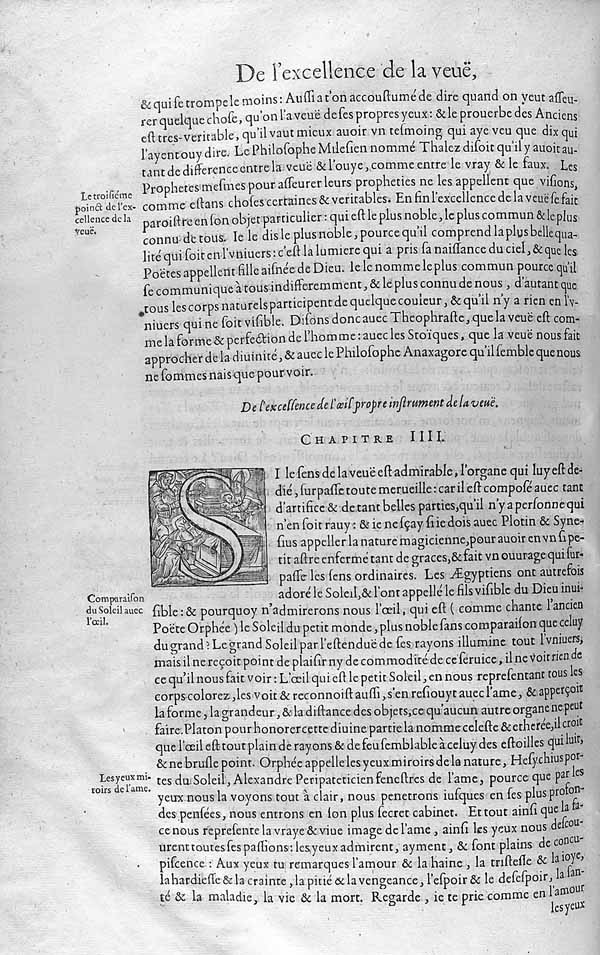 De l'excellence de la veuë,
& qui ſe trompe le moins: Auſſi a t'on accouſtumé de dire quand on veut aſſeu-
rer quelque choſe, qu'on l'a veuë de ſes propres yeux: & le prouerbe des Anciens
eſt tres-veritable, qu'il vaut mieux auoir vn teſmoing qui aye veu que dix qui
l'ayent ouy dire. Le Philoſophe Mileſien nommé Thalez diſoit qu'il y auoit au-
tant de difference entre la veuë & l'ouye, comme entre le vray & le faux. Les
Prophetes meſmes pour aſſeurer leurs propheties ne les appellent que viſions,
Le troiſiéme
poinct de l'ex-
cellence de la
veuë.
comme eſtans choſes certaines & veritables. En fin l'excellence de la veuë ſe fait
paroiſtre en ſon objet particulier: qui eſt le plus noble, le plus commun & le plus
connu de tous. Ie le dis le plus noble, pource qu'il comprend la plus belle qua-
lité qui ſoit en l'vniuers: c'eſt la lumiere qui a pris ſa naiſſance du ciel, & que les
Poëtes appellent fille aiſnée de Dieu. Ie le nomme le plus commun pource qu'il
ſe communique à tous indifferemment, & le plus connu de nous, d'autant que
tous les corps naturels participent de quelque couleur, & qu'il n'y a rien en l'v-
niuers qui ne ſoit viſible. Diſons donc auec Theophraſte, que la veuë eſt com-
me la forme & perfection de l'homme: auec les Stoïques, que la veuë nous fait
approcher de la diuinité, & auec le Philoſophe Anaxagore qu'il ſemble que nous
ne ſommes nais que pour voir.
De l'excellence de l'œil propre inſtrument de la veuë.
CHAPITRE IIII.
SI le ſens de la veuë eſt admirable, l'organe qui luy eſt de-
dié, ſurpaſſe toute merueille: car il eſt compoſé auec tant
d'artifice & de tant belles parties, qu'il n'y a perſonne qui
n'en ſoit rauy: & ie ne ſçay ſi ie dois auec Plotin & Syne-
ſius appeller la nature magicienne, pour auoir en vn ſi pe-
tit aſtre enfermé tant de graces, & fait vn ouurage qui ſur-
paſſe les ſens ordinaires. Les Ægyptiens ont autrefois
adoré le Soleil, & l'ont appellé le fils viſible du Dieu inui-
Comparaiſon
du Soleil auec
l'œil.
ſible: & pourquoy n'admirerons nous l'œil, qui eſt (comme chante l'ancien
Poëte Orphée) le Soleil du petit monde, plus noble ſans comparaiſon que celuy
du grand? Le grand Soleil par l'eſtenduë de ſes rayons illumine tout l'vniuers,
mais il ne reçoit point de plaiſir ny de commodité de ce ſeruice, il ne voit rien de
ce qu'il nous fait voir: L'œil qui eſt le petit Soleil, en nous repreſentant tous les
corps colorez, les voit & reconnoiſt auſſi, s'en reſiouyt auec l'ame, & apperçoit
la forme, la grandeur, & la diſtance des objets, ce qu'aucun autre organe ne peut
faire. Platon pour honorer cette diuine partie la nomme celeſte & etherée, il croit
que l'œil eſt tout plain de rayons & de feu ſemblable à celuy des eſtoilles qui luit,
& ne bruſle point. Orphée appelle les yeux miroirs de la nature, Heſychius por-
Les yeux mi-
roirs de l'ame.
tes du Soleil, Alexandre Peripateticien feneſtres de l'ame, pource que par les
yeux nous la voyons tout à clair, nous penetrons iuſques en ſes plus profon-
des penſées, nous entrons en ſon plus ſecret cabinet. Et tout ainſi que la fa-
ce nous repreſente la vraye & viue image de l'ame, ainſi les yeux nous deſcou-
urent toutes ſes paſſions: les yeux admirent, ayment, & ſont plains de concu-
piſcence: Aux yeux tu remarques l'amour & la haine, la triſteſſe & la ioye,
la hardieſſe & la crainte, la pitié & la vengeance, l'eſpoir & le deſeſpoir, la ſan-
té & la maladie, la vie & la mort. Regarde, ie te prie comme en l'amour
les yeux